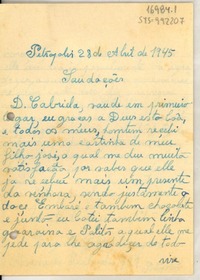 16984.1
SYS-992207
Petropolis 28 de Abril de 1945
Saudações
D. Gabriela, saude em primeiro
lugar, eu graças a Deus esto boa,
e todos os meus, tambem recebi
mais uma cartinha de meu
filho João, a qual me deu muita
satisfação, por saber que elle
ja recebeu mais um presente
da senhora, sendo justamente o
doce Embaré, e tambem chocolate
e junto eu botei tambem linha
e Palito, aquel elle me
pede para lhe agradeger de todo